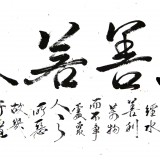 善若
水
善利
萬物
而不爭
處眾
人之
所惡
故幾
于道